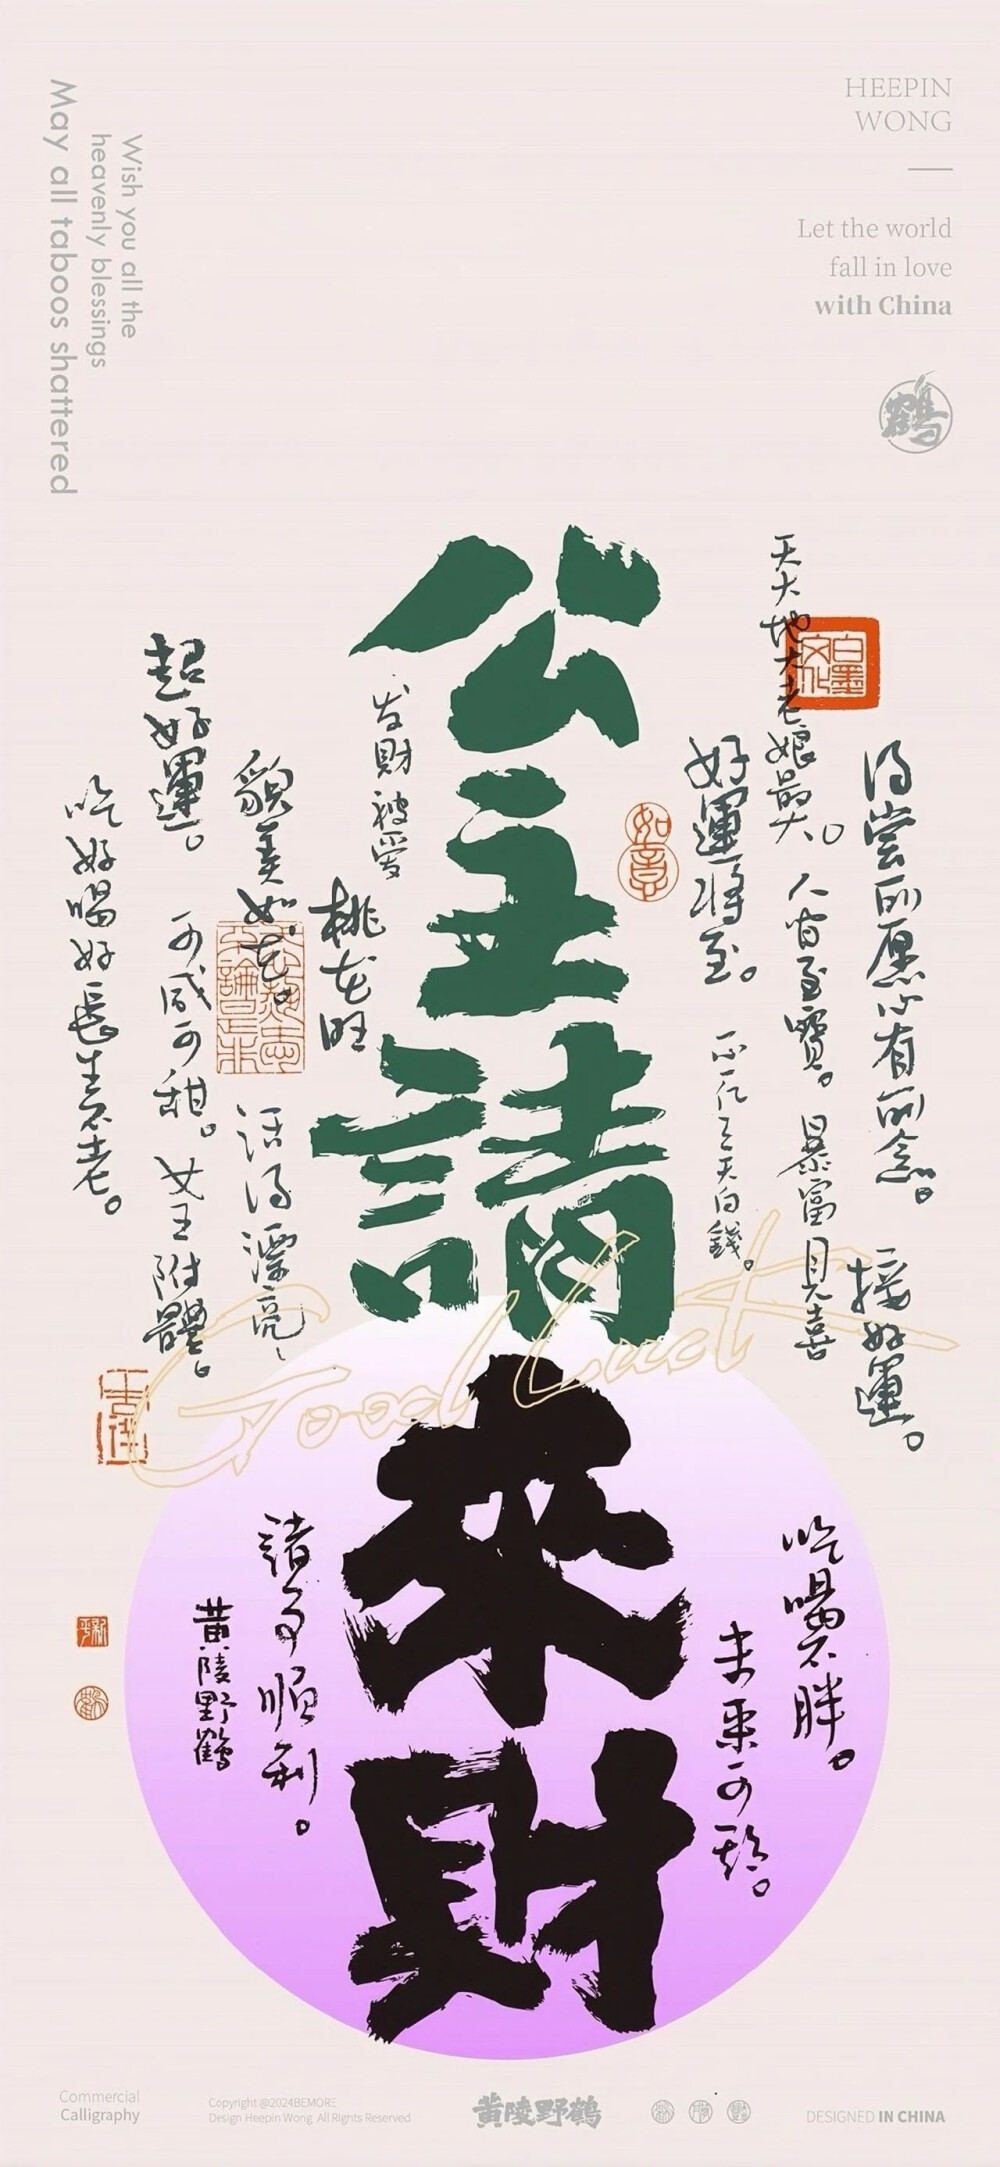 HEEPIN
WONG
Let the world
fall in love
with China
鶴
Wish you all the
heavenly blessings
May all taboos shattered
公主請
來財
得嘗所愿心有所念。
接好運。
天大地大老娘最大。
人皆至寶。
暴富見喜
好運將至。
白墨
文化
如意
发財被愛
桃花旺
貌美如花。
活得漂亮、
超好運。
可咸可甜。
女王附體。
吃好喝好長生不老。
Good Luck
吃喝不胖。
未來可期。
諸事順利。
黄陵野鶴
Commercial
Calligraphy
Copyright @2024BEMORE
Design Heepin Wong All Rights Reserved
黄陵野鶴
DESIGNED IN CHINA